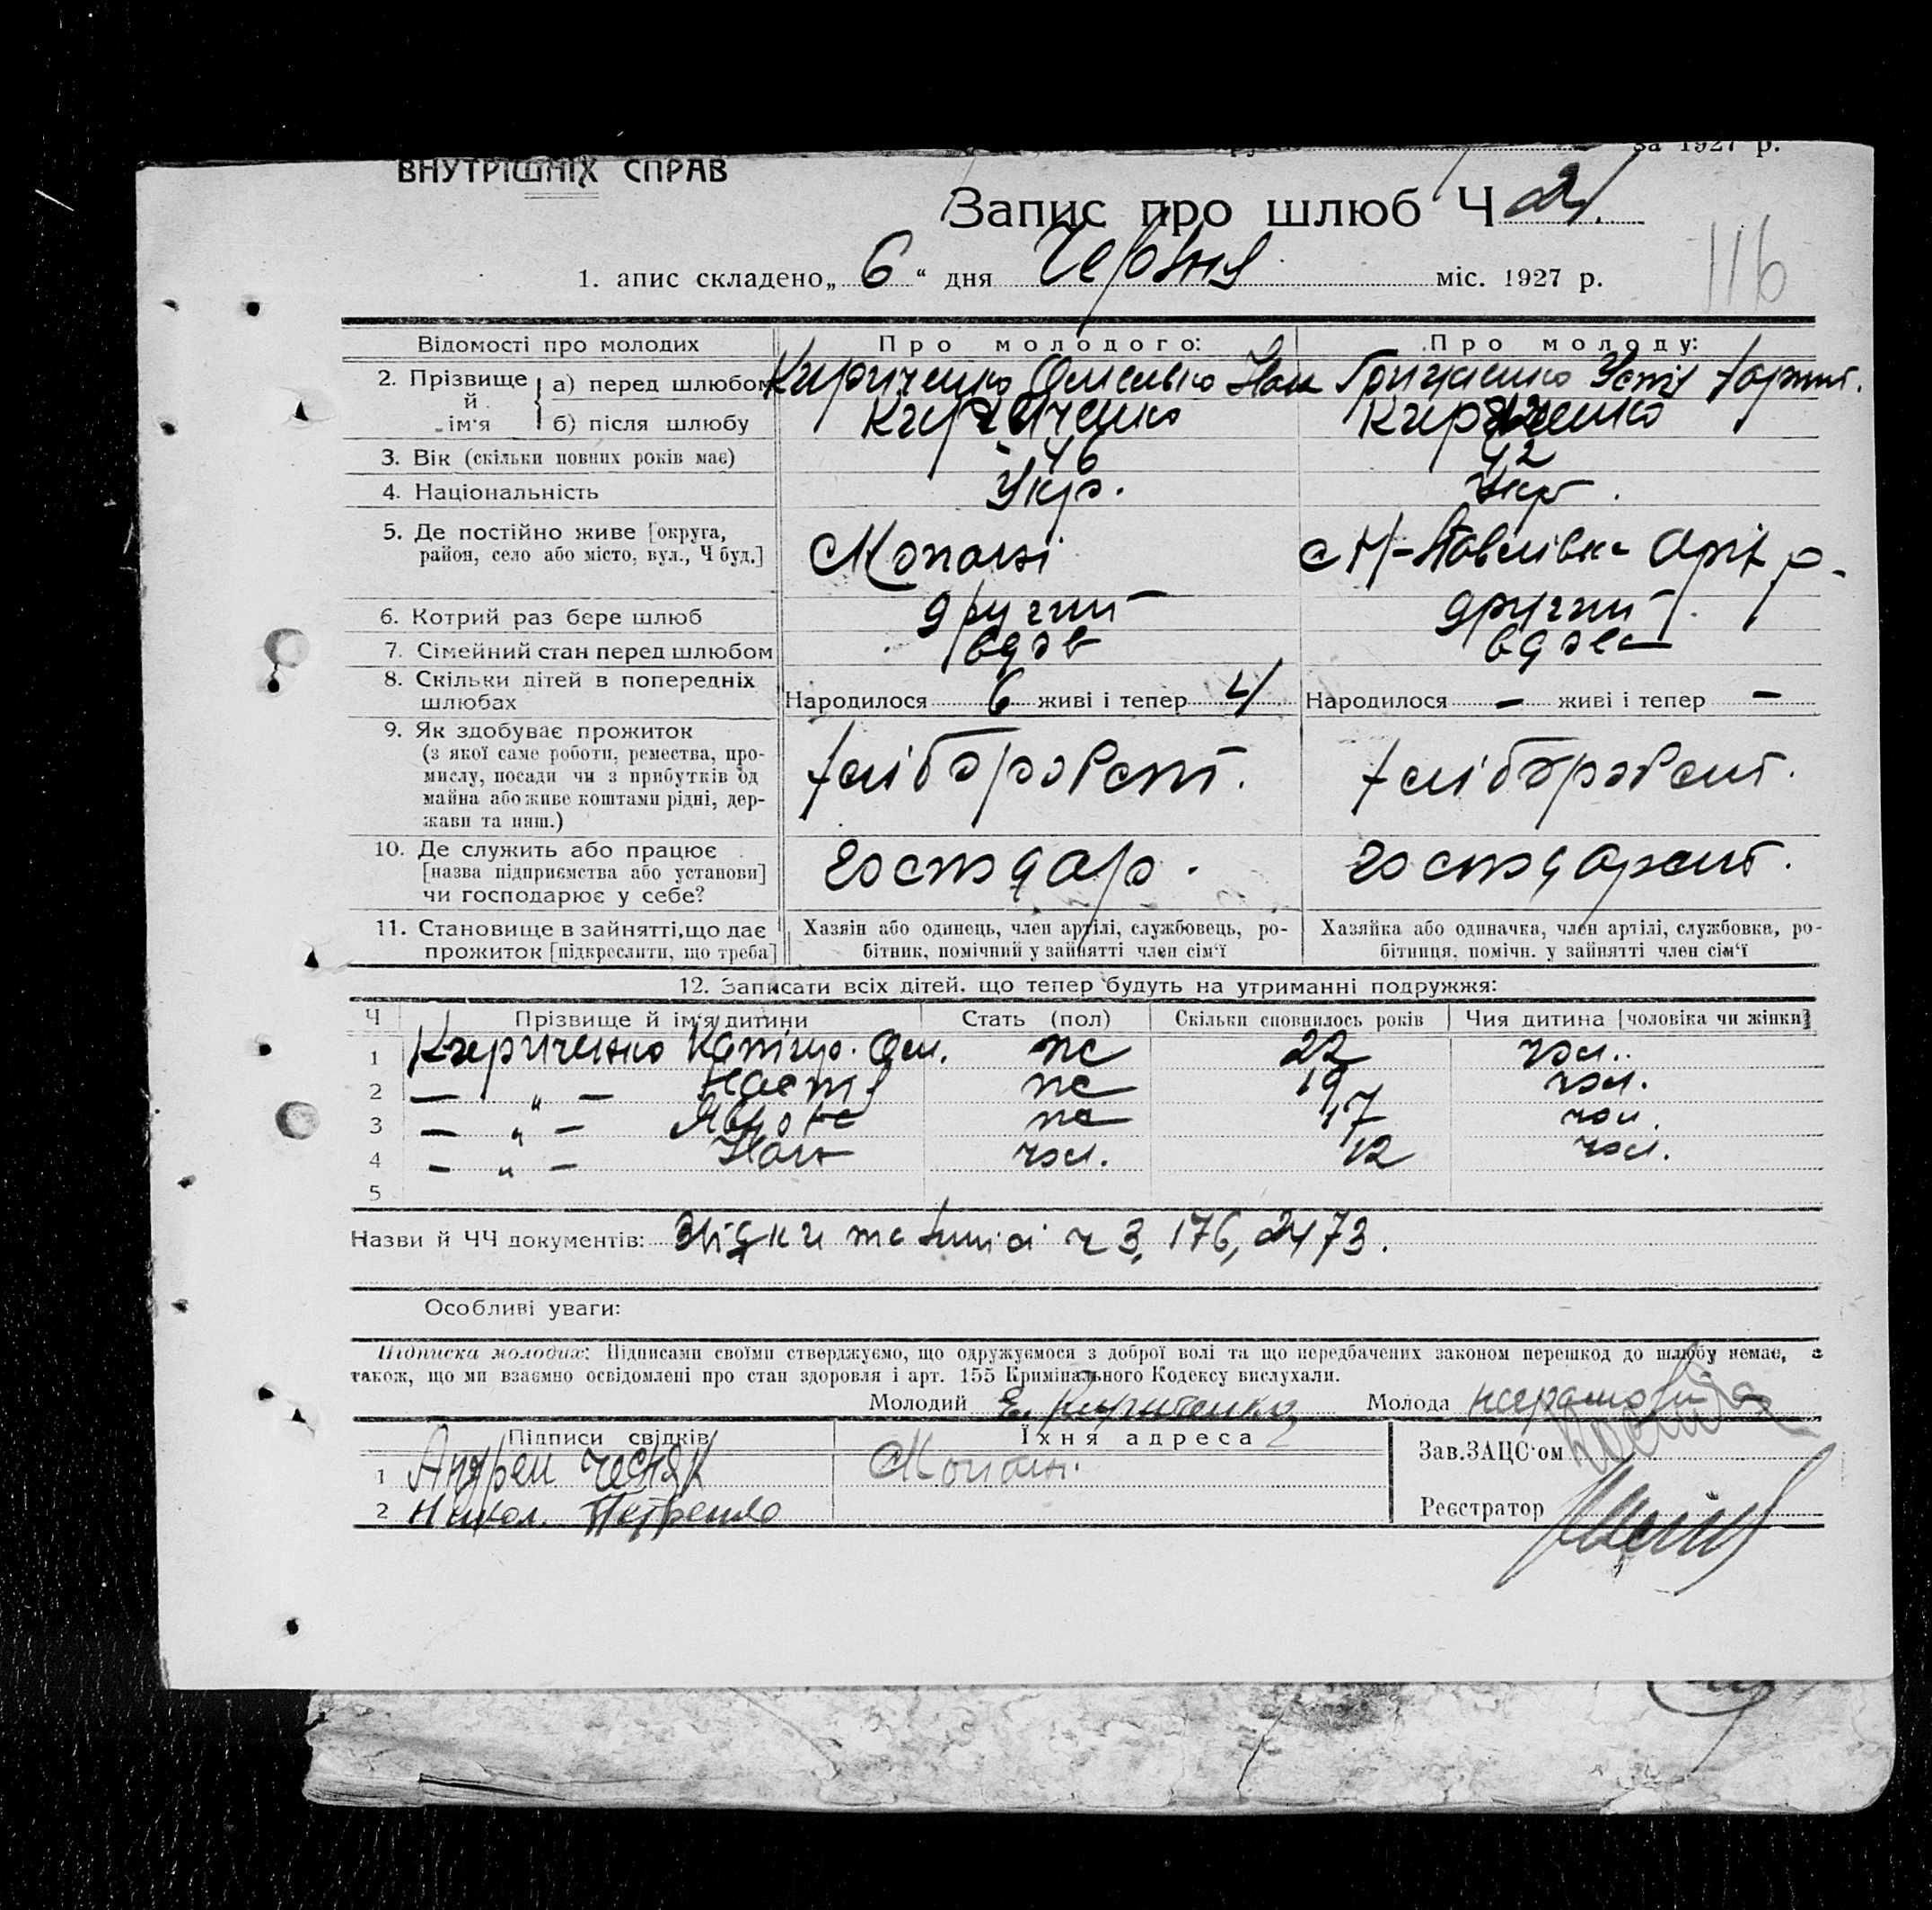 ВНУТРІШНІХ СПРАВ
за 1927 р.
Запис про шлюб Ч 21.
116
1. апис складено „ 6 “ дня Червня міс. 1927 р.
Відомості про молодих Про молодого: Про молоду:
2. Прізвище й ім‘я а) перед шлюбом Кириченко Омелько Устя
б) після шлюбу Кириченко Кириченко
3. Вік (скільки повних років має) 46 42
4. Національність Укр. Укр.
5. Де постійно живе [округа,
район, село або місто, вул., Ч буд.] Павлівка р.
6. Котрий раз бере шлюб другий другий
7. Сімейний стан перед шлюбом вдов вдова
8. Скільки дітей в попередніх
шлюбах Народилося 6 живі і тепер 4 Народилося – живі і тепер –
9. Як здобуває прожиток
(з якої саме роботи, ремества, про-
мислу, посади чи з прибутків од
майна або живе коштами рідні, дер-
жави та инш.) хліборобст. хліборобст.
10. Де служить або працює
[назва підприємства або установи]
чи господарює у себе? господар.
11. Становище в зайнятті, що дає
прожиток [підкреслити, що треба]
Хазяін або одинець, член артілі, службовець, ро-
бітник, помічний у зайнятті член сім‘ї
Хазяйка або одиначка, член артілі, службовка, ро-
бітниця, помічн. у зайнятті член сім‘ї
12. Записати всіх дітей, що тепер будуть на утриманні подружжя:
Ч Прізвище й ім‘я дитини Стать (пол) Скільки сповнилось років Чия дитина [чоловіка чи жінки]
1 Кириченко Катир. Ом. жс 22 чол.
2 – „ – Настя жс 19 чол.
3 – „ – жс 17 чол.
4 – „ – Іван чол. 12 чол.
5
Назви й ЧЧ документів: ч 3, 176, 2473.
Особливі уваги:
Підписка молодих: Підписами своїми стверджуємо, що одружуємося з доброї волі та що передбачених законом перешкод до шлюбу немає, а
також, що ми взаємно освідомлені про стан здоровля і арт. 155 Кримінального Кодексу вислухали.
Молодий Е. Кириченко Молода
Підписи свідків Їхня адреса Зав. ЗАЦС‘ом
1 Андрей Чесняк
2 Никол. Петренко Реєстратор